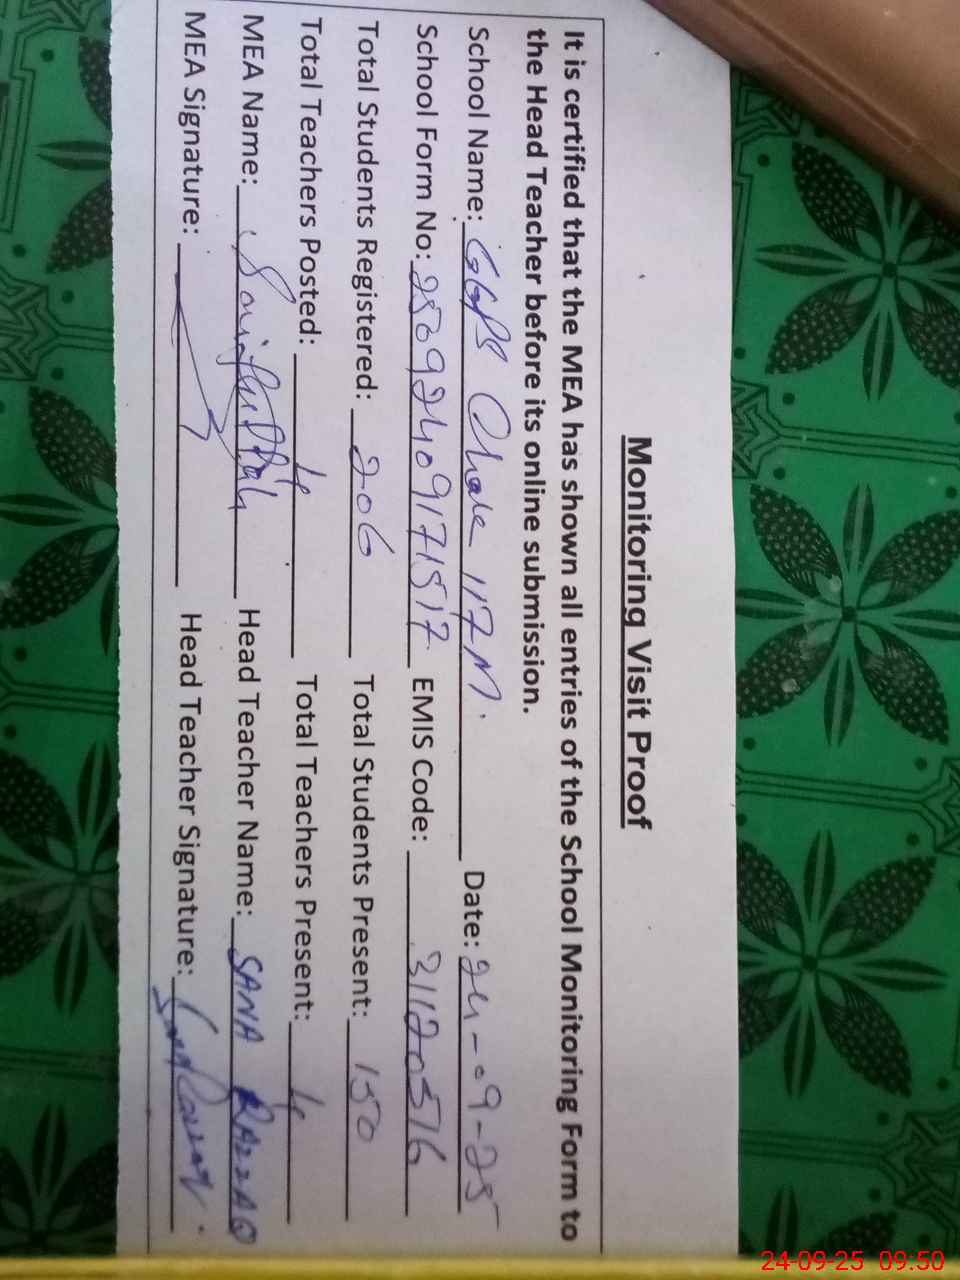 Monitoring Visit Proof
It is certified that the MEA has shown all entries of the School Monitoring Form to
the Head Teacher before its online submission.
School Name: GGPS Chak 117 M. Date: 24-09-25
School Form No: 25092409171517 EMIS Code: 31120516
Total Students Registered: 206 Total Students Present: 150
Total Teachers Posted: 4 Total Teachers Present: 4
MEA Name: Head Teacher Name: SANA RAZZAQ
MEA Signature: Head Teacher Signature:
24-09-25 09:50